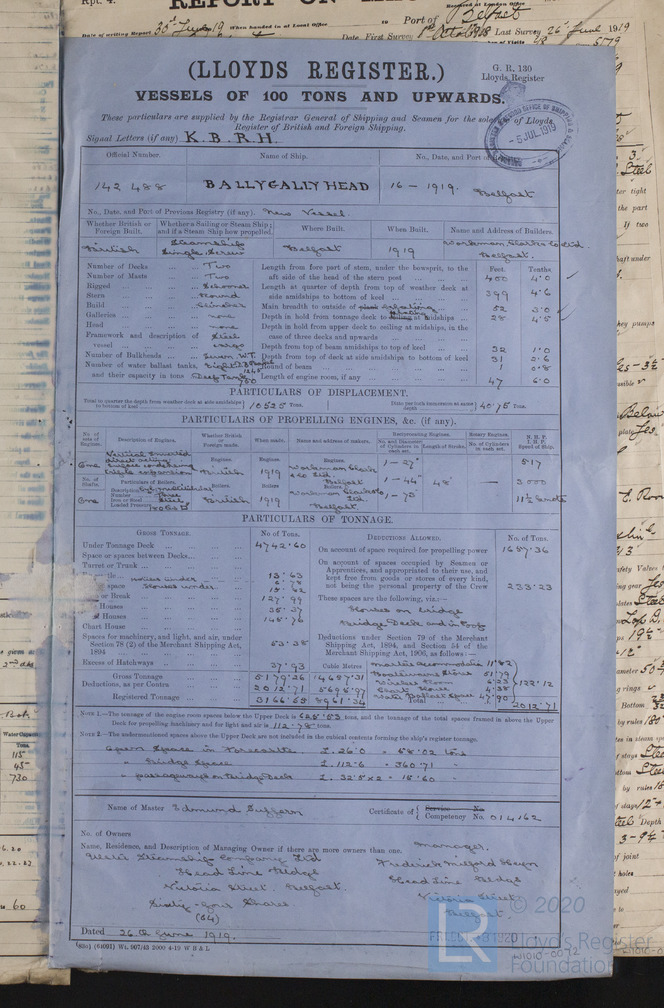 Rpt. 4.
Port of Belfast
Date of writing Report 30th June 19 When handed in at Local Office
Received at London Office
Date, First Survey Last Survey 26th June 1919
(LLOYDS REGISTER.)
G. R. 130
Lloyds Register
VESSELS OF 100 TONS AND UPWARDS.
These particulars are supplied by the Registrar General of Shipping and Seamen for the sole of Lloyds
Register of British and Foreign Shipping.
-5 JUL 1919
Signal Letters (if any) K.B.R.H.
Official Number. Name of Ship. No., Date, and Port of
142 488 BALLYGALLY HEAD 16 - 1919. Belfast
No., Date, and Port of Previous Registry (if any). New Vessel.
Whether British or Foreign Built. Whether a Sailing or Steam Ship; and if a Steam Ship how propelled. Where Built. When Built. Name and Address of Builders.
British Steamship Single Screw Belfast 1919 Workman, Clark & Co Ltd. Belfast.
Number of Decks Two
Number of Masts Two
Rigged Schooner
Stern Round
Build Clincher
Galleries none
Head none
Framework and description of vessel Steel cargo
Number of Bulkheads Seven W.T.
Number of water ballast tanks,
and their capacity in tons Deep Tank 750
Feet. Tenths.
Length from fore part of stem, under the bowsprit, to the
aft side of the head of the stern post 400 4.0
Length at quarter of depth from top of weather deck at
side amidships to bottom of keel 399 4.6
Main breadth to outside of plating 52 3.0
Depth in hold from tonnage deck to ceiling at midships 28 4.5
Depth in hold from upper deck to ceiling at midships, in the
case of three decks and upwards
Depth from top of beam amidships to top of keel 32 1.0
Depth from top of deck at side amidships to bottom of keel 31 0.6
Round of beam 1 0.8
Length of engine room, if any 47 6.0
PARTICULARS OF DISPLACEMENT.
Total to quarter the depth from weather deck at side amidships
to bottom of keel 10525 Tons.
Ditto per inch immersion at same
depth 40.75 Tons.
PARTICULARS OF PROPELLING ENGINES, &c. (if any).
No. of sets of Engines. Description of Engines. Whether British or Foreign made. When made. Name and address of makers. Reciprocating Engines. Rotary Engines. N. H. P. I. H. P. Speed of Ship.
No. and Diameter of Cylinders in each set. Length of Stroke. No. of Cylinders in each set.
One Vertical Inverted direct acting engine condensing triple expansion British 1919 Workman Clark & Co Ltd. Belfast
1 - 27" 517
1 - 44 48" 3000
1 - 73" 11½ knots
No. of Shafts. Particulars of Boilers.
Description
Number Three
Iron or Steel Steel
Loaded Pressure 180 lbs
One British 1919 Workman Clark & Co Ltd. Belfast
PARTICULARS OF TONNAGE.
GROSS TONNAGE. No of Tons. DEDUCTIONS ALLOWED. No. of Tons.
Under Tonnage Deck 4742.60
Space or spaces between Decks
Turret or Trunk
Houses
Chart House
Spaces for machinery, and light, and air, under
Section 78 (2) of the Merchant Shipping Act,
1894 53.38
Excess of Hatchways 37.93
Gross Tonnage 5179.26 14657.31
Deductions, as per Contra 2012.71 5695.97
Registered Tonnage 3166.55 8961.34
Cubic Metres
On account of space required for propelling power 1657.36
On account of spaces occupied by Seamen or
Apprentices, and appropriated to their use, and
kept free from goods or stores of every kind,
not being the personal property of the Crew 233.23
These spaces are the following, viz.:—
Houses on bridge
Bridge Deck and in Poop
Deductions under Section 79 of the Merchant
Shipping Act, 1894, and Section 54 of the
Merchant Shipping Act, 1906, as follows:—
Master's accommodation 11.82
Boatswain's Stores 51.79
Chart House 4.38
Water Ballast Space
122.12
Total 2012.71
NOTE 1.—The tonnage of the engine room spaces below the Upper Deck is 625.53 tons, and the tonnage of the total spaces framed in above the Upper
Deck for propelling machinery and for light and air is 112.78 tons.
NOTE 2.—The undermentioned spaces above the Upper Deck are not included in the cubical contents forming the ship's register tonnage.
Open Space in Forecastle L. 26.0 = 58.02 tons
" Bridge Space L. 112.6 = 360.71 "
" passageways on Bridge Deck L. 32.5 x 2 = 15.60 "
Name of Master Edmund Suffern
Certificate of Service No.
Competency No. 014162
No. of Owners
Name, Residence, and Description of Managing Owner if there are more owners than one.
Ulster Steamship Company Ltd
Head Line Bldgs
Victoria Street, Belfast.
Sixty-four Shares
(64)
Manager.
Frederick Milford Heyn
Head Line Bldgs
Victoria Street
Belfast.
Dated 26th June 1919.
(61001) Wt. 007/43 2000 4-19 W B & L
© 2020
LR
Lloyd's Register
Foundation
W1010-0072